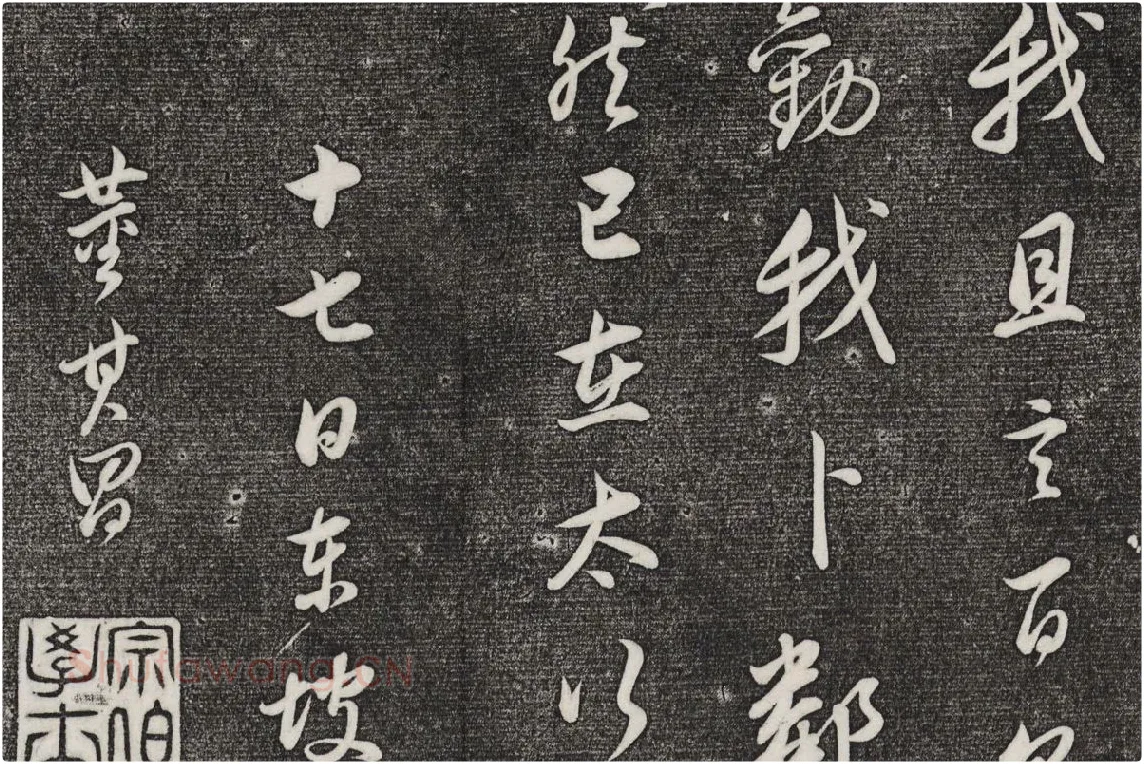 我且言百
勸我卜鄰
然已在太
十七日东坡
董其昌
宗伯學士
Shufawang.CN